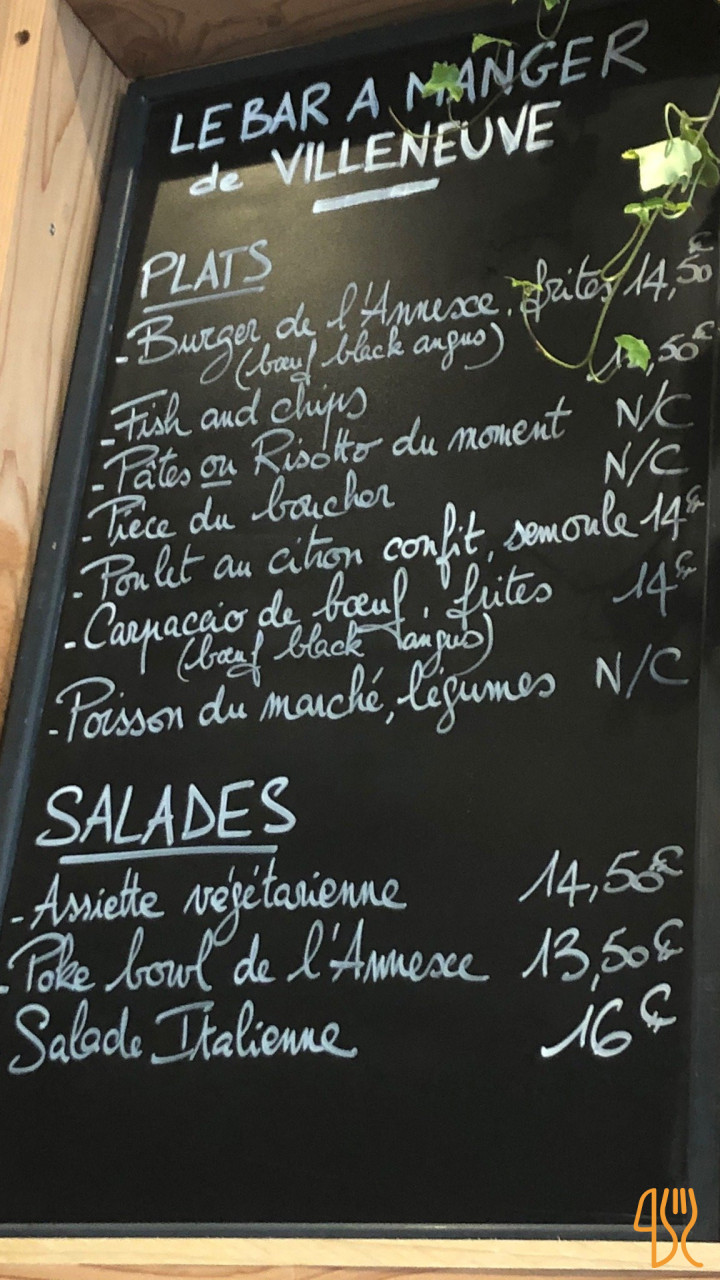 LE BAR A MANGER
de VILLENEUVE
PLATS
- Burger de l'Annexe, frites 14,50€
(bœuf black angus)
- Fish and chips
- Pâtes ou Risotto du moment N/C
- Pièce du boucher N/C
- Poulet au citron confit, semoule 14€
- Carpaccio de bœuf, frites 14€
(bœuf black angus)
- Poisson du marché, légumes N/C
SALADES
- Assiette végétarienne 14,50€
- Poke bowl de l'Annexe 13,50€
Salade Italienne 16€